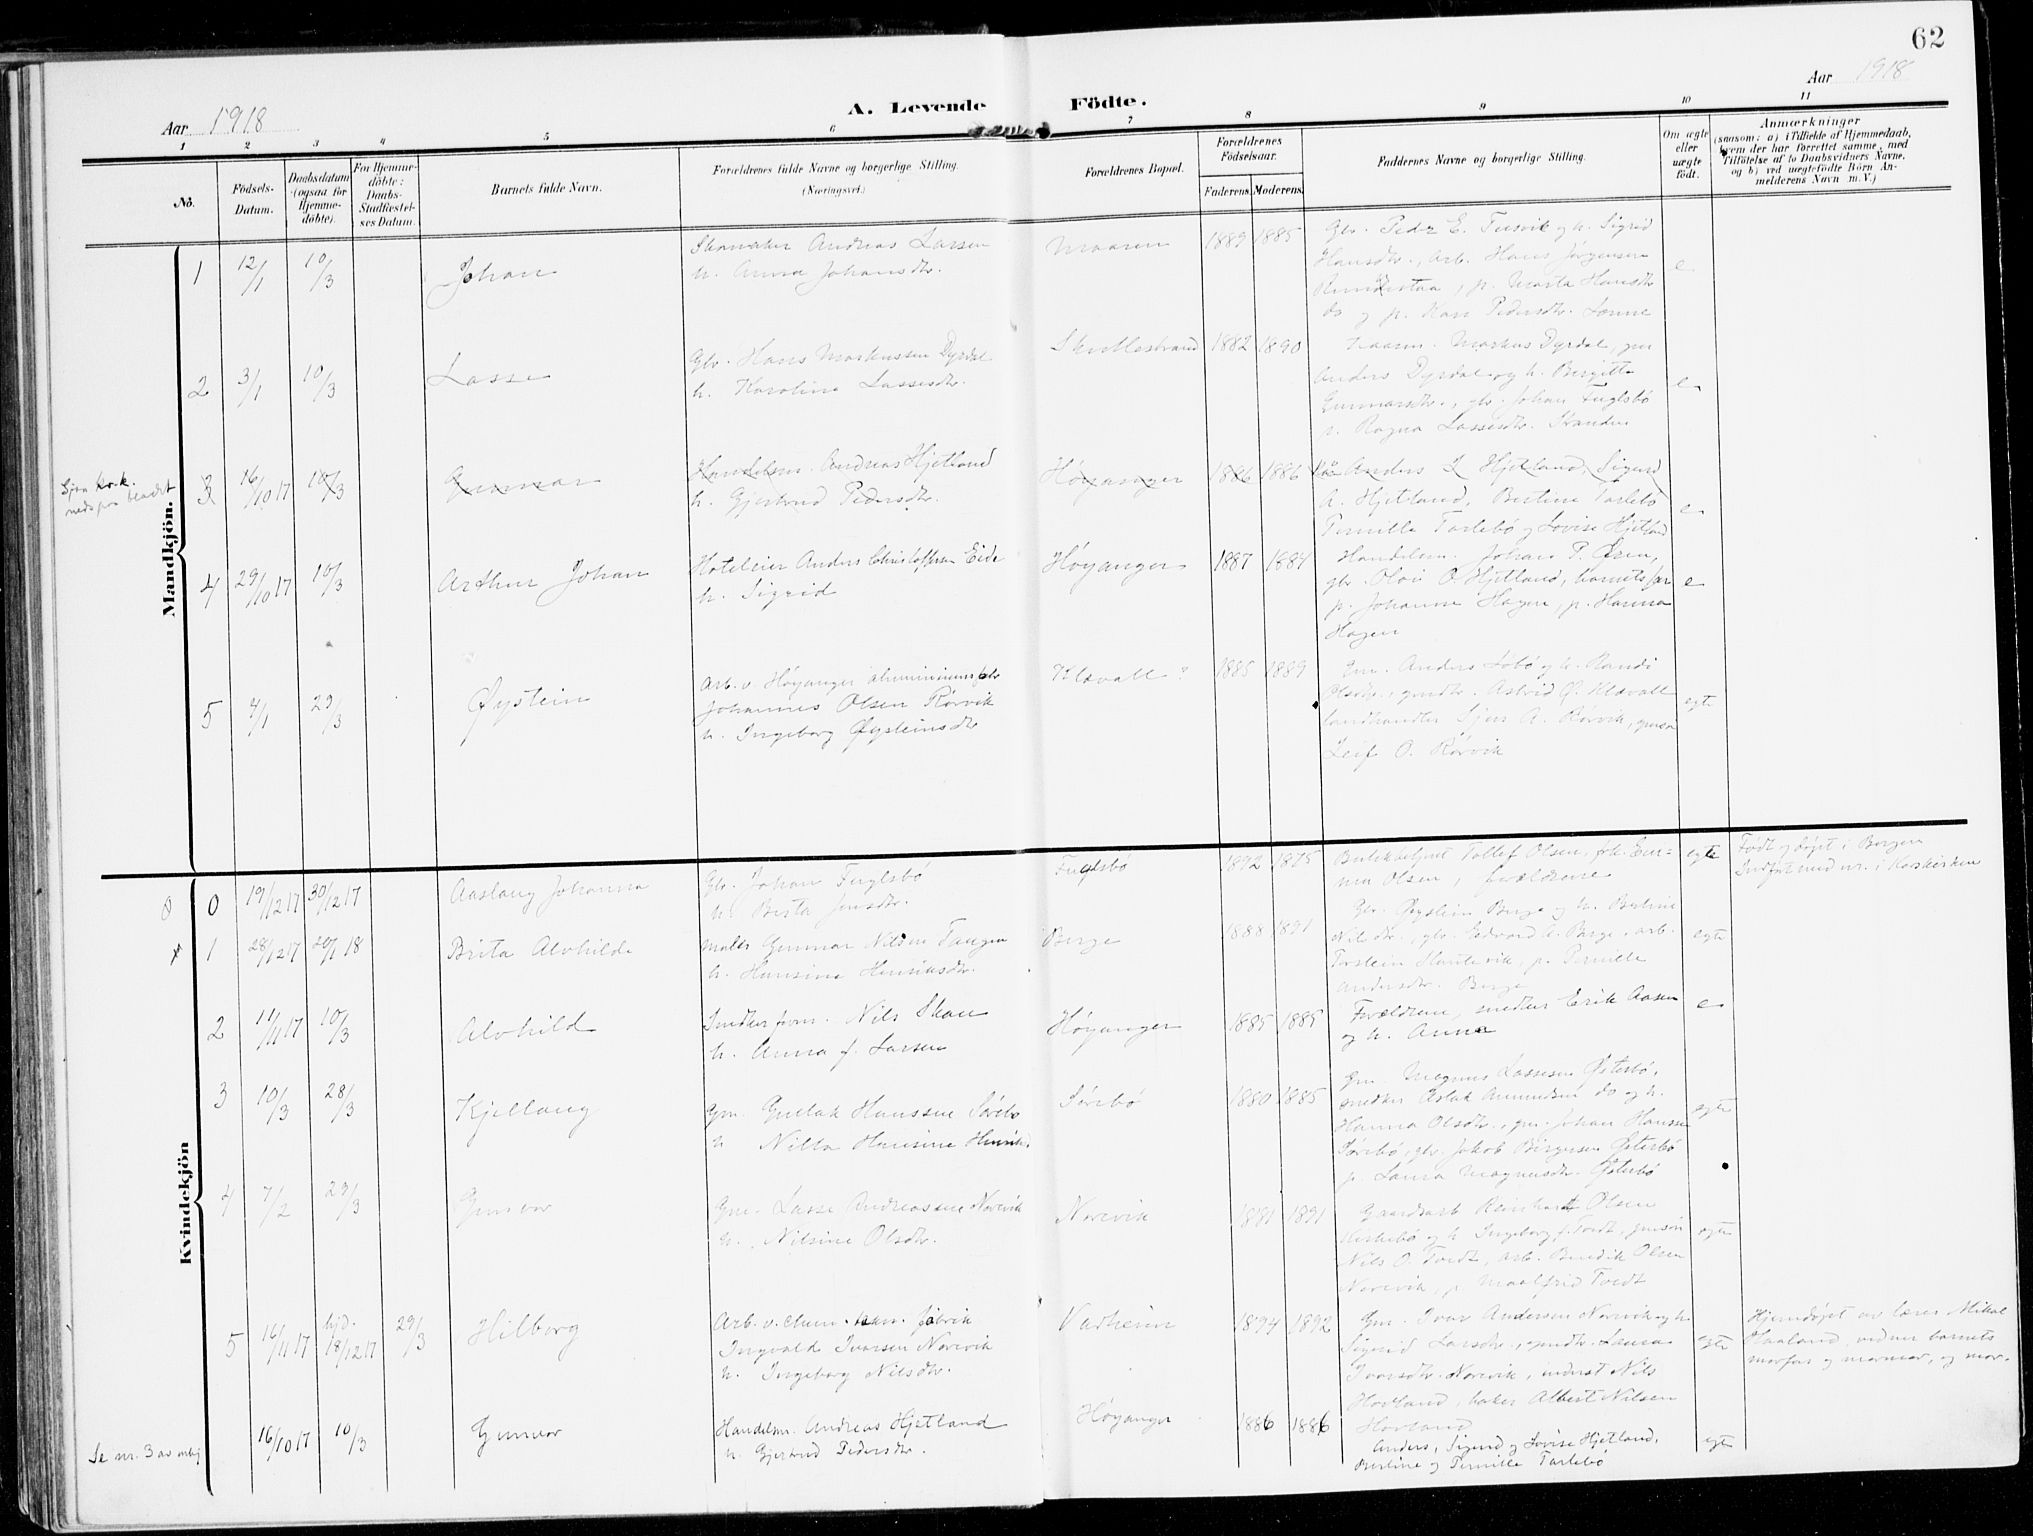 62
Aar 1918
A. Levende Födte.
Aar 1918
1 2 3 4 5 6 7 8 9 10 11
No.
Födsels-Datum.
Daabsdatum (ogsaa for Hjemmedöbte).
For Hjemmedöbte: Daabs-Stadfæstelses Datum.
Barnets fulde Navn.
Forældrenes fulde Navne og borgerlige Stilling. (Næringsvei.)
Forældrenes Bopæl.
Forældrenes Födselsaar.
Faderens. Moderens.
Faddernes Navne og borgerlige Stilling.
Om ægte eller uægte födt.
Anmærkninger
(saasom: a) i Tilfælde af Hjemmedaab,
hvem der har forrettet samme, med
Tilföielse af to Daabsvidners Navne,
og b) ved uægtefödte Börn An-
melderens Navn m. V.)
Mandkjön.
1 12/1 10/3 Johan
Skomaker Andreas Larsen
h. Anna Johansdtr.
Maaren 1889 1885
Gbr. Peder E. Fusvik og h. Sigrid
Hansdtr., arb. Hans Jørgensen
, p. Marta Hansdtr
do og p. Kari Pedersdtr.
e
2 3/1 10/3 Lasse
Gbr. Hans Markussen Dyrdal
h. Karoline Lassesdtr.
1882 1890
Markus Dyrdal, gm
Anders Dyrdal og h. Birgitte
Gunnarsdtr., gbr. Johan Fuglsbø
p. Ragna Lassesdtr.
e
3 16/10 17 10/3 Gunnar
Handelsm. Andreas Hjetland
h. Gjertrud Pedersdtr.
Høyanger 1886 1886
Anders Hjetland, Sigurd
A. Hjetland, Bertine Tarlebø
Pernille Tarlebø og Lovise Hjetland
e
4 29/10 17 10/3 Arthur Johan
Hoteleier Anders Christoffersen Eide
h. Sigrid
Høyanger 1887 1884
Handelsm. Johan P. Øren,
gbr. Olai O. Hjetland, barnets far
p. Johanne Hagen, p. Hanna
Hagen
e
5 4/1 29/3 Øystein
Arb. v. Høyanger aluminiumfabr
Johannes Olsen Rørvik
h. Ingeborg Øysteinsdtr
Klævall 1885 1889
Gm. Anders Løbø og h. Randi
Olsdtr., gmdtr. Astrid Ø. Klævall
landhandler Sjur A. Rørvik, gmson
Leif O. Rørvik
egte
Kvindekjön
0 19/12 17 30/12 17 Aaslaug Johanna
Gbr. Johan Fuglsbø
h. Berta Jensdtr.
Fuglsbø 1892 1895
Tollef Olsen,
Olsen, forældrene
egte
Født og døpt i Bergen
Indført med nr. i Korskirken
1 28/12 17 20/1 18 Brita Alvhilde
Maler Gunnar Nilsen Tangen
h. Hansine Henriksdtr.
Berge 1888 1891
Gbr. Øystein Berge og h. Bertine
Nilsdtr., gbr. Edvard A. Berge, arb.
Torstein , p. Pernille
Andersdtr. Berge
egte
2 11/11 17 10/3 Alvhild
Smedkerform. Nils Skau
h. Anna f. Larsen
Høyanger 1885 1885
Forældrene, snedker Erik Aasen
og h. Anna
e
3 10/3 28/3 Kjellaug
Gm. Gullak Hanssen Sørebø
h. Nilla Hansine
Sørebø 1880 1885
Gm. Magnus Lassesen Østerbø,
snedker Aslak Amundsen do og h.
Hanna Olsdtr., gm. Johan Hanssen
Sørebø, gbr. Jakob Birgersen Østerbø
p. Laura Magnusdtr. Østerbø
egte
4 7/2 29/3 Gunvor
Gm. Lasse Andreassen Norevik
h. Nilsine Olsdtr.
Norevik 1891 1891
Gaardsarb Reinhardt Olsen
Kirkebø og h Ingeborg f. Tvedt, gmson
Nils O. Tvedt, arb. Bendik Olsen
Norevik, p Maalfrid Tvedt
egte
5 16/11 17 hjd. 18/12 17 29/3 Hilborg
Arb. v. chem. fabrik
Ingvald Ivarsen Norevik
h. Ingeborg Nilsdtr.
Vadheim 1894 1892
Gm. Ivar Andersen Norevik og h.
Sigrid Larsdtr., gmdtr. Laura
Ivarsdtr. Norevik, inderst Nils
Hovland, baker Albert Nilsen
Hovland
egte
Hjemdøpt av lærer Mikal
Haaland, vidner barnets
morfar og mormor, og mor.
Se nr. 3 av mkj
16/10 17 10/3 Gunvor
Handelsm. Andreas Hjetland
h. Gjertrud Pedersdtr.
Høyanger 1886 1886
Anders, Sigurd og Lovise Hjetland,
Bertine og Pernille Tarlebø
egte